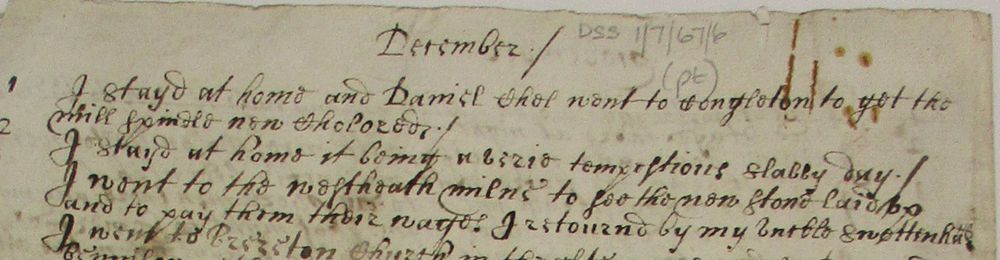 December./
DSS 1/7/67/6
(pt)
1 I stayd at home and Daniel went to Congleton to get the
2 mill spindle new
I stayd at home it being a verie tempestious slabby day./
I went to the westheath milne to see the new stone laid
and to pay them their wages I retournd by my unckle
I went to Brereton Church in